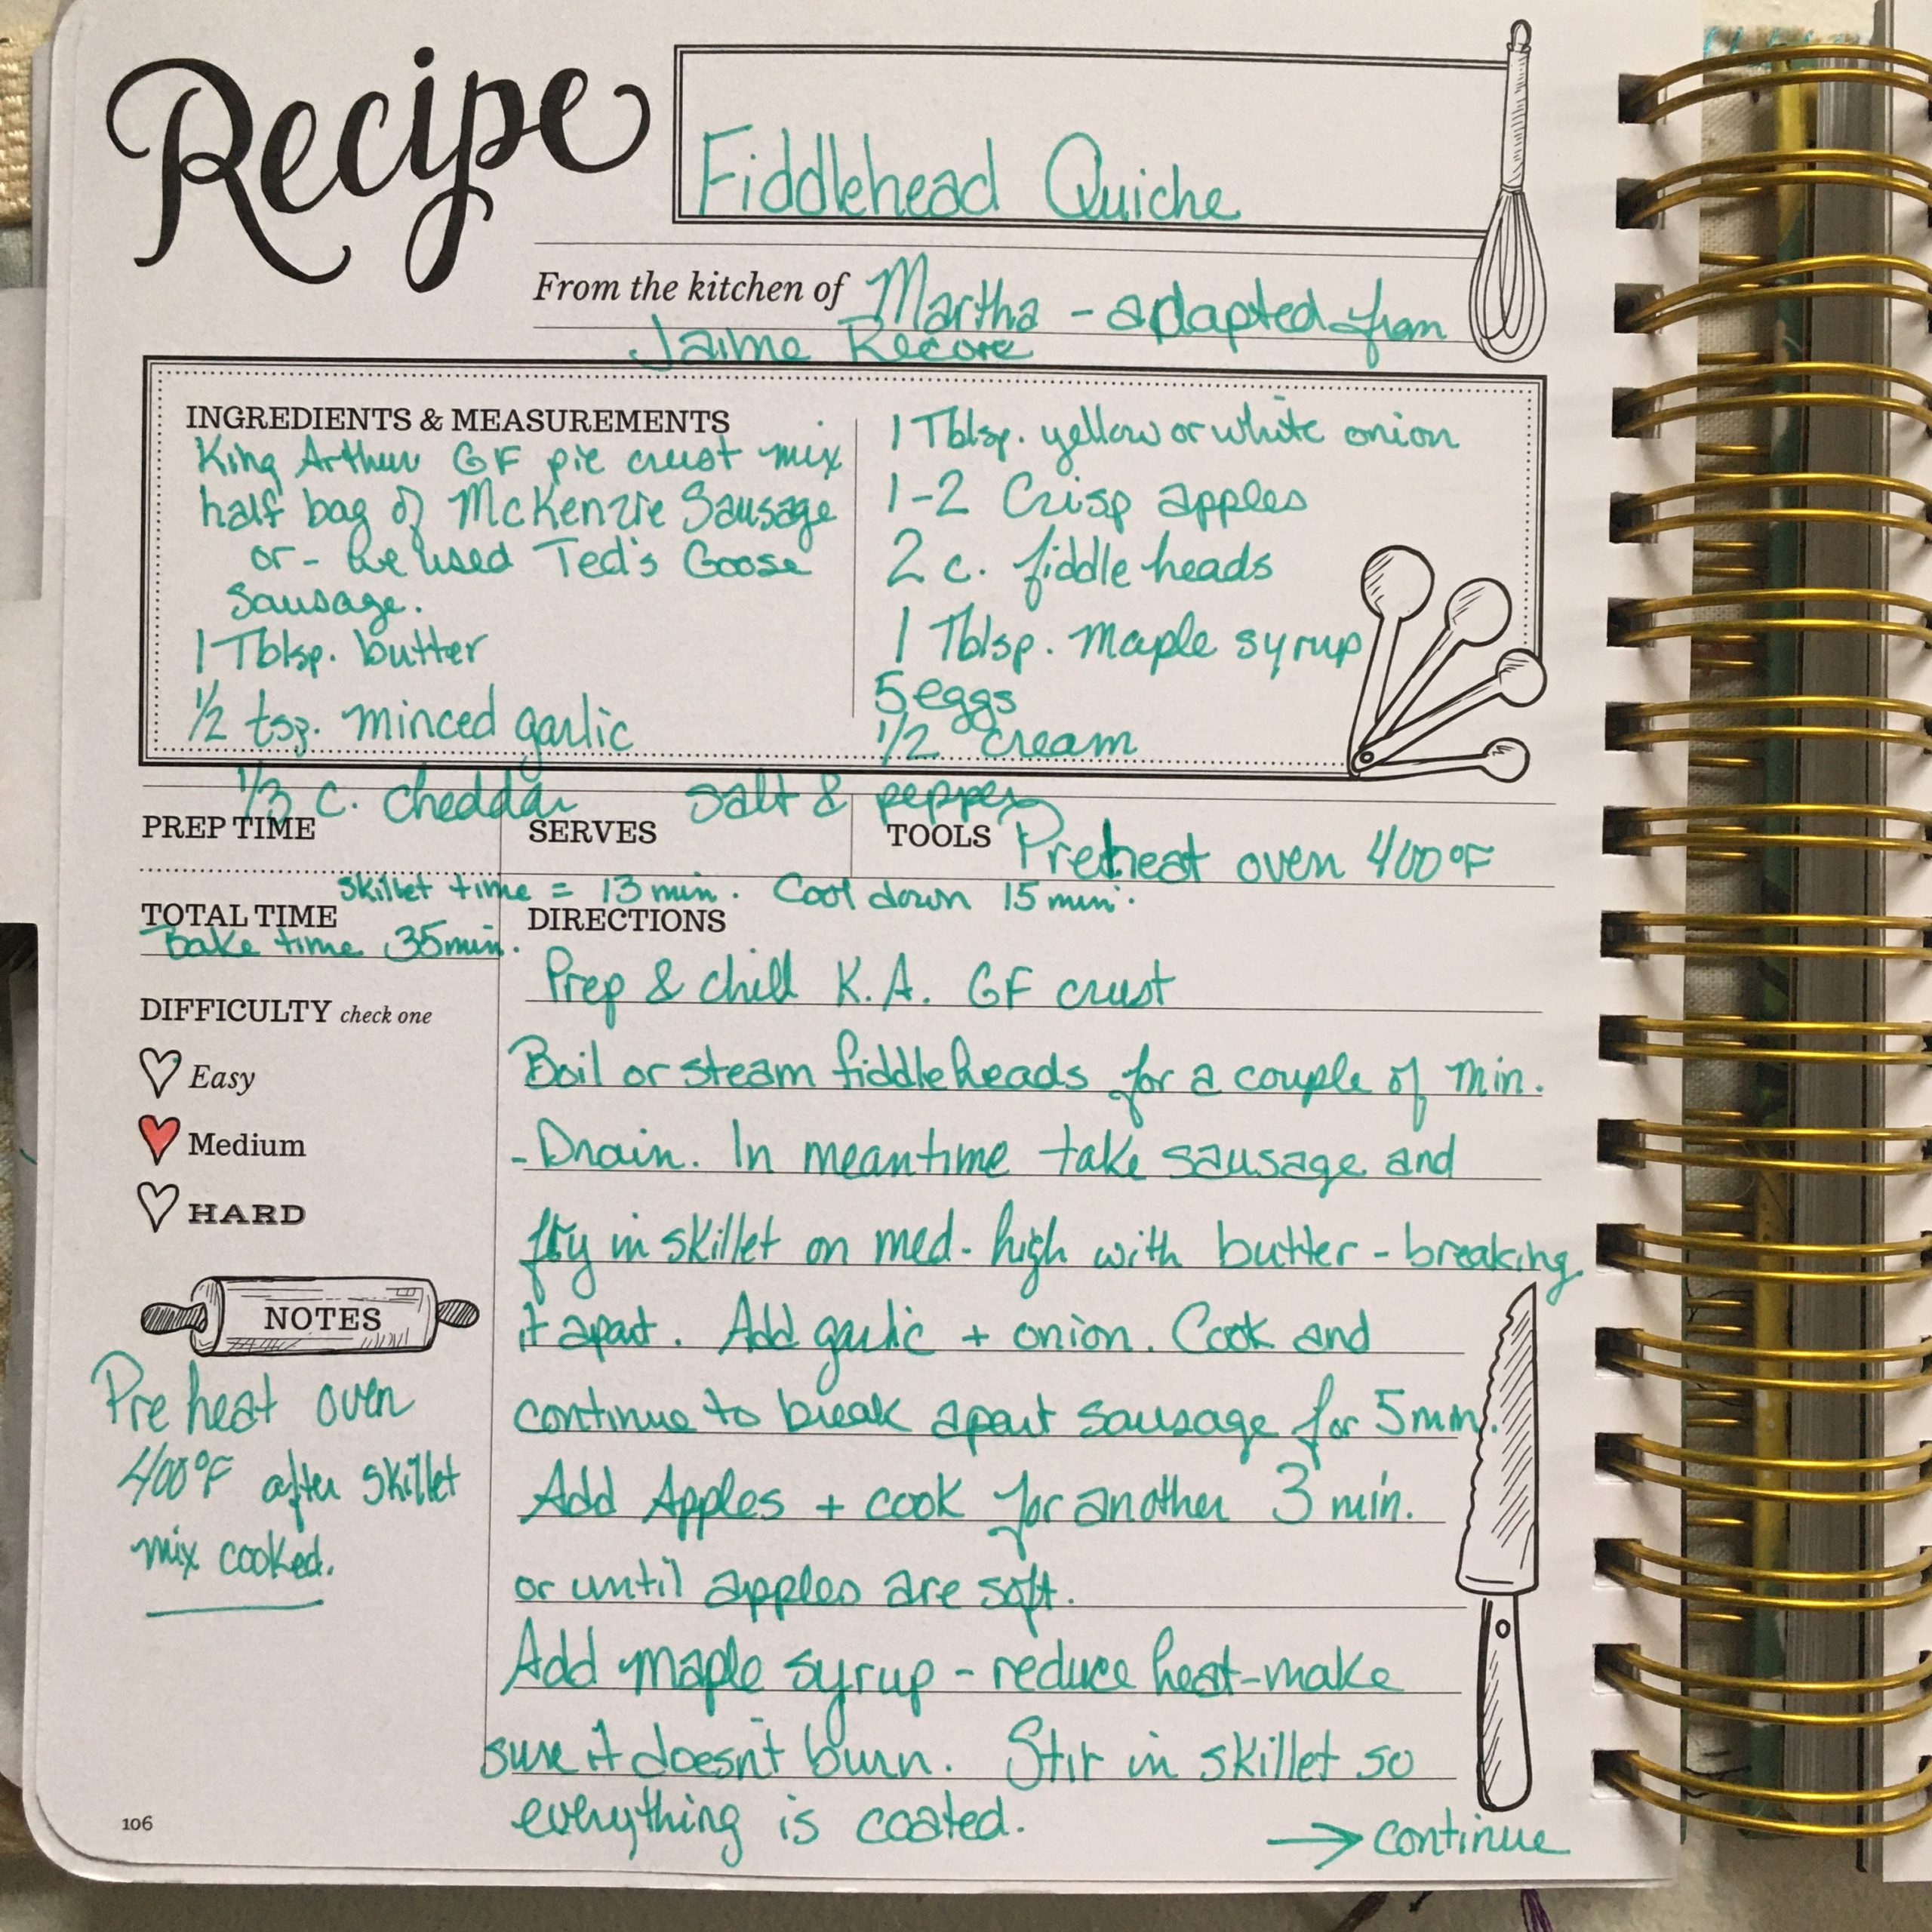 Recipe
Fiddlehead Quiche
From the kitchen of Martha - adapted from
Jaime Recore
INGREDIENTS & MEASUREMENTS
King Arthur GF pie crust mix
half bag of McKenzie Sausage
or - we used Ted's Goose
Sausage.
1 Tblsp. butter
1/2 tsp. minced garlic
1/3 c. cheddar
1 Tblsp. yellow or white onion
1-2 Crisp apples
2 c. fiddle heads
1 Tblsp. maple syrup
5 eggs
1/2 cream
salt & pepper
PREP TIME
SERVES
TOOLS Preheat oven 400°F
skillet time = 13 min. Cool down 15 min.
TOTAL TIME
Bake time 35 min.
DIFFICULTY check one
Easy
Medium
HARD
NOTES
Pre heat oven
400°F after skillet
mix cooked.
DIRECTIONS
Prep & chill K.A. GF crust
Boil or steam fiddleheads for a couple of min.
-Drain. In meantime take sausage and
fry in skillet on med-high with butter - breaking
it apart. Add garlic + onion. Cook and
continue to break apart sausage for 5 min.
Add Apples + cook for another 3 min.
or until apples are soft.
Add maple syrup - reduce heat-make
sure it doesn't burn. Stir in skillet so
everything is coated.
→ continue
106